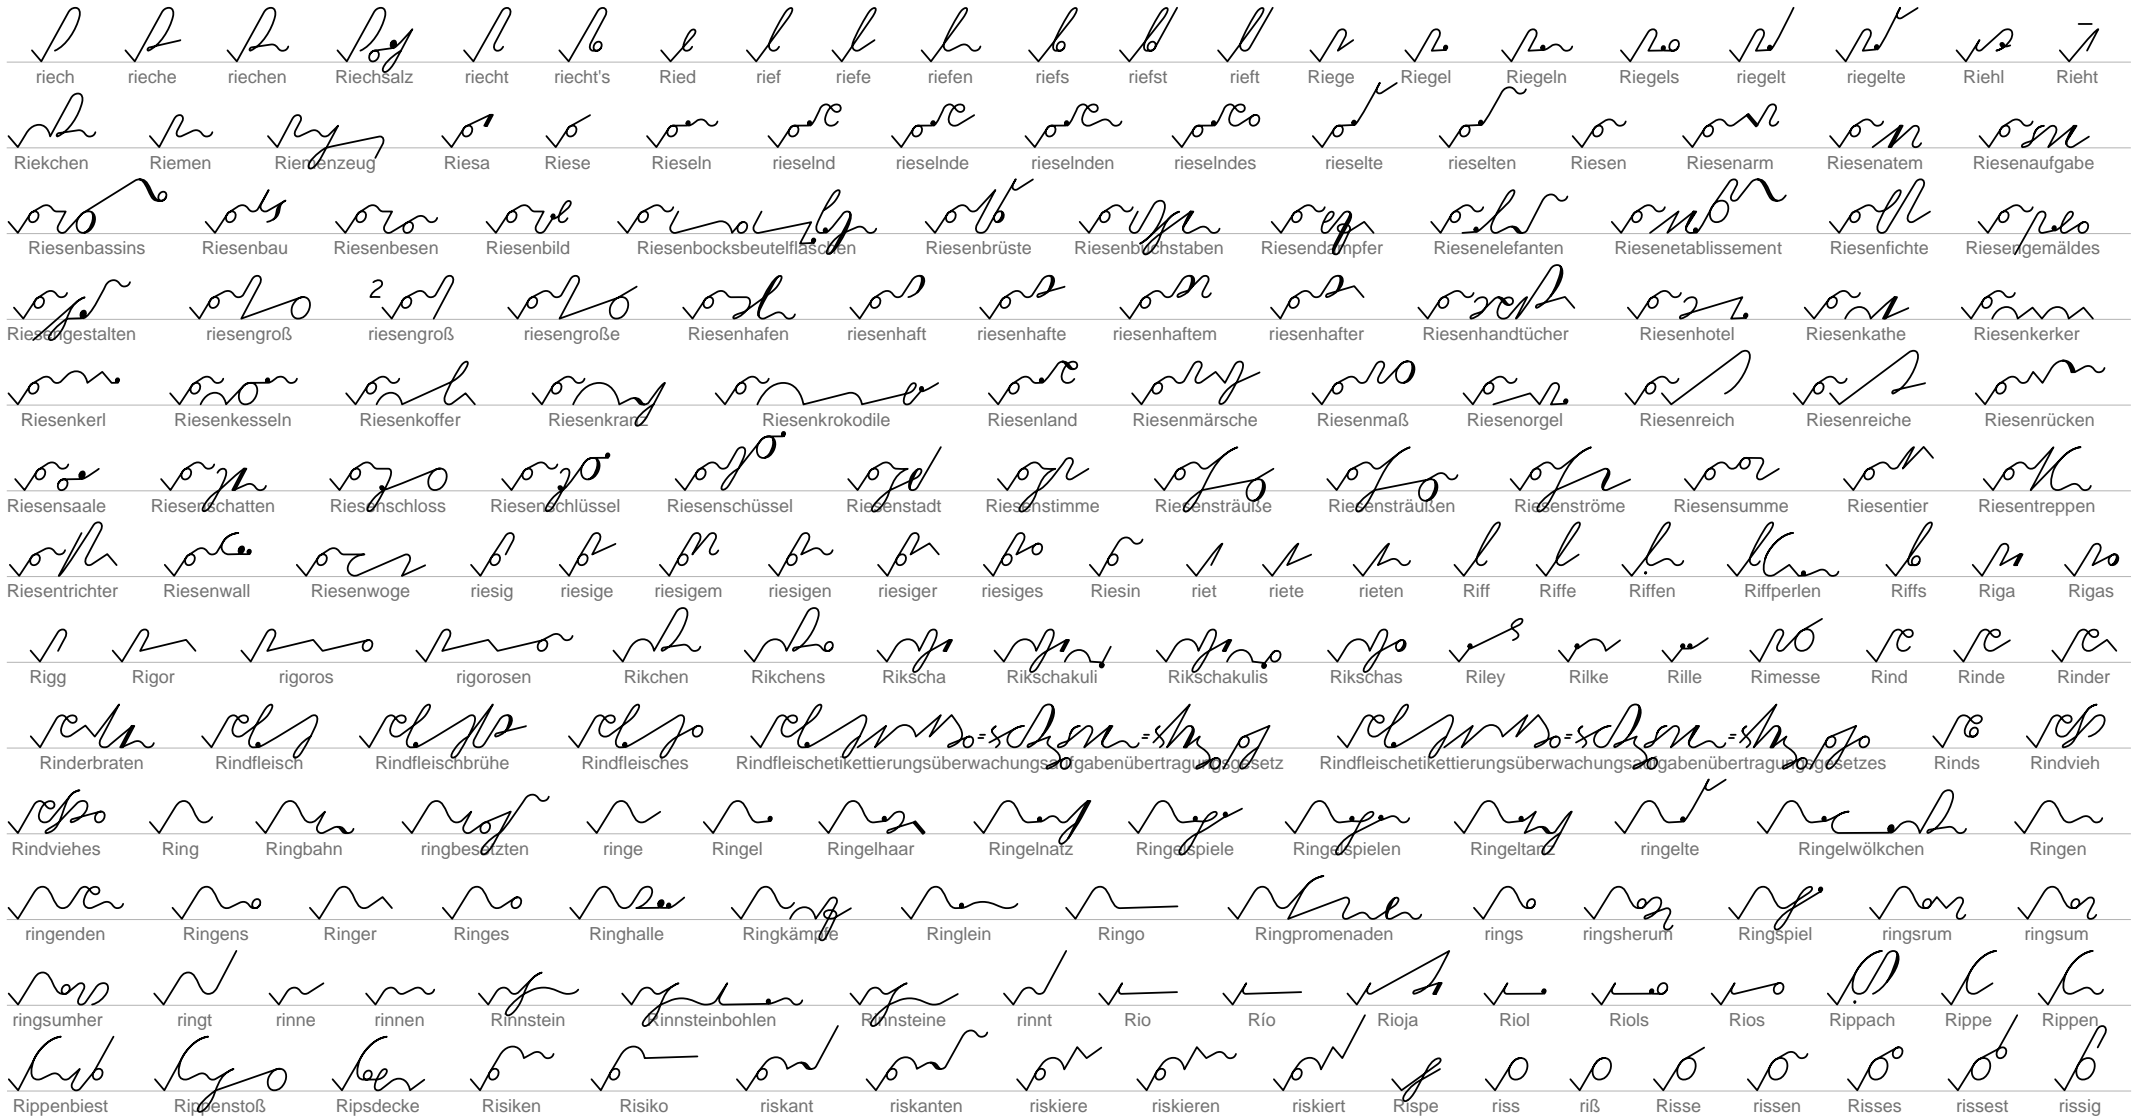 riech rieche riechen Riechsalz riecht riecht's Ried rief riefe riefen riefs riefst rieft Riege Riegel Riegeln Riegels riegelt riegelte Riehl Rieht
Riekchen Riemen Riemenzeug Riesa Riese Rieseln rieselnd rieselnde rieselnden rieselndes rieselte rieselten Riesen Riesenarm Riesenatem Riesenaufgabe
Riesenbassins Riesenbau Riesenbesen Riesenbild Riesenbocksbeutelflaschen Riesenbrüste Riesenbuchstaben Riesendampfer Riesenelefanten Riesenetablissement Riesenfichte Riesengemäldes
Riesengestalten riesengroß 2 riesengroß riesengroße Riesenhafen riesenhaft riesenhafte riesenhaftem riesenhafter Riesenhandtücher Riesenhotel Riesenkathe Riesenkerker
Riesenkerl Riesenkesseln Riesenkoffer Riesenkranz Riesenkrokodile Riesenland Riesenmärsche Riesenmaß Riesenorgel Riesenreich Riesenreiche Riesenrücken
Riesensaale Riesenschatten Riesenschloss Riesenschlüssel Riesenschüssel Riesenstadt Riesenstimme Riesensträuße Riesensträußen Riesenströme Riesensumme Riesentier Riesentreppen
Riesentrichter Riesenwall Riesenwoge riesig riesige riesigem riesigen riesiger riesiges Riesin riet riete rieten Riff Riffe Riffen Riffperlen Riffs Riga Rigas
Rigg Rigor rigoros rigorosen Rikchen Rikchens Rikscha Rikschakuli Rikschakulis Rikschas Riley Rilke Rille Rimesse Rind Rinde Rinder
Rinderbraten Rindfleisch Rindfleischbrühe Rindfleisches Rindfleischetikettierungsüberwachungsaufgabenübertragungsgesetz Rindfleischetikettierungsüberwachungsaufgabenübertragungsgesetzes Rinds Rindvieh
Rindviehes Ring Ringbahn ringbesetzten ringe Ringel Ringelhaar Ringelnatz Ringelspiele Ringelspielen Ringeltanz ringelte Ringelwölkchen Ringen
ringenden Ringens Ringer Ringes Ringhalle Ringkämpfe Ringlein Ringo Ringpromenaden rings ringsherum Ringspiel ringsrum ringsum
ringsumher ringt rinne rinnen Rinnstein Rinnsteinbohlen Rinnsteine rinnt Rio Río Rioja Riol Riols Rios Rippach Rippe Rippen
Rippenbiest Rippenstoß Ripsdecke Risiken Risiko riskant riskanten riskiere riskieren riskiert Rispe riss riß Risse rissen Risses rissest rissig